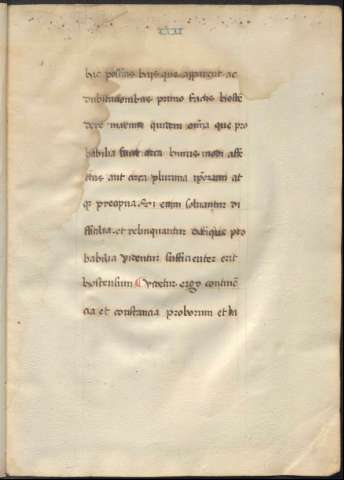 hic possitis hiis que apparent ac
dubitationibus primo factis hosten
dere maxime quidem omnia que pro
babilia sunt circa huius modi affe
ctus aut circa plurima ipsorum at
que precipua. Si enim solvantur di
fficilia. et relinquantur dictique pro
babilia videntur sufficienter erit
hostensum Videtur ergo continen
cia et constancia proborum et la